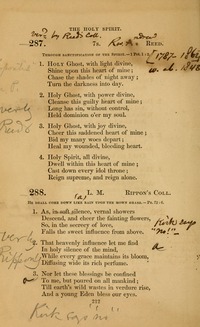 THE HOLY SPIRIT.
287. 7s. REED.
1. HOLY Ghost, with light divine,
Shine upon this heart of mine;
Chase the shades of night away;
Turn the darkness into day.
2. Holy Ghost, with power divine,
Cleanse this guilty heart of mine;
Long has sin, without control,
Held dominion o'er my soul.
3. Holy Ghost, with joy divine,
Cheer this saddened heart of mine;
Bid my many woes depart;
Heal my wounded, bleeding heart.
4. Holy Spirit, all divine,
Dwell within this heart of mine;
Cast down every idol throne;
Reign supreme, and reign alone.
288. L. M. RIPPON'S COLL.
HE SHALL COME DOWN LIKE RAIN UPON THE MOWN GRASS.
1. As, in soft silence, vernal showers
Descend, and cheer the fainting flowers,
So, in the secrecy of love,
Falls the sweet influence from above.
Kirk says
"no!"
2. That heavenly influence let me find
In holy silence of the mind,
While every grace maintains its bloom,
Diffusing wide its rich perfume.
3. Nor let these blessings be confined
To me, but poured on all mankind;
Till earth's wild wastes in verdure rise,
And a young Eden bless our eyes.
Kirk says "no"